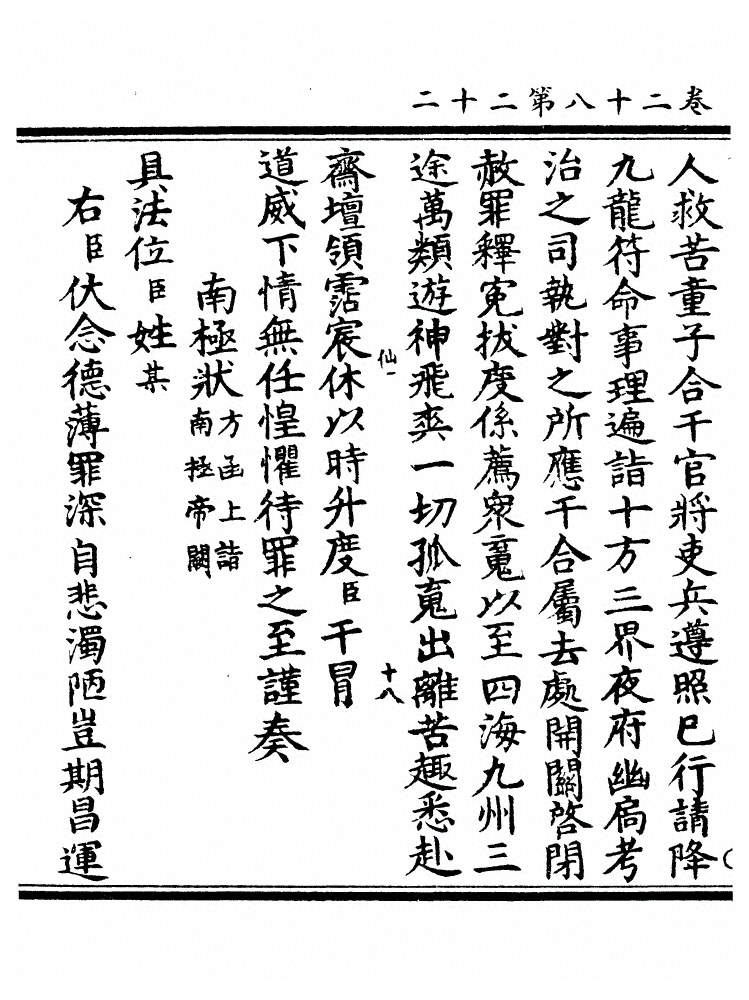 卷二十八第二十二
人救苦童子合干官將吏兵遵照已行請降
九龍符命事理遍詣十方三界夜府幽扃考
治之司執對之所應干合屬去處開關啓閉
赦罪釋寃拔度係薦衆䰟以至四海九州三
途萬類遊神飛爽一切孤䰟出離苦趣悉赴
仙一
十八
齋壇領霑宸休以時升度臣干冒
道威下情無任惶懼待罪之至謹奏
南極狀方函上詣
南極帝闕
具法位臣姓某
右臣伏念德薄罪深自悲濁陋豈期昌運